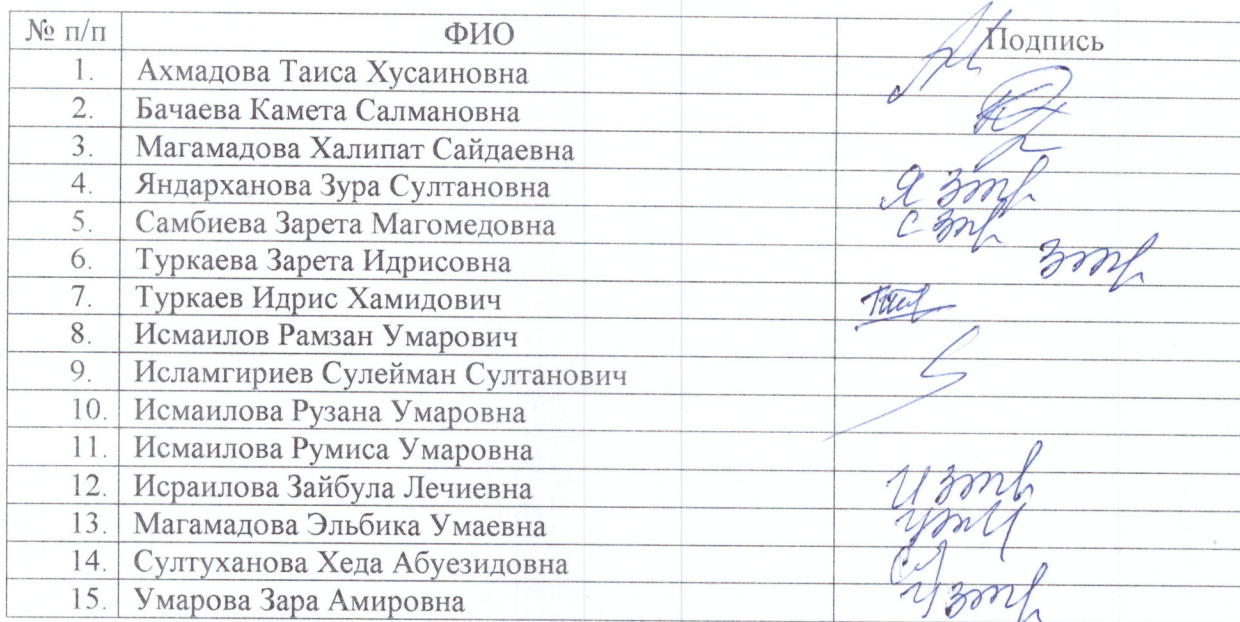 № п/п ФИО Подпись
1. Ахмадова Таиса Хусаиновна
2. Бачаева Камета Салмановна
3. Магамадова Халипат Сайдаевна
4. Яндарханова Зура Султановна
5. Самбиева Зарета Магомедовна
6. Туркаева Зарета Идрисовна
7. Туркаев Идрис Хамидович
8. Исмаилов Рамзан Умарович
9. Исламгириев Сулейман Султанович
10. Исмаилова Рузана Умаровна
11. Исмаилова Румиса Умаровна
12. Исраилова Зайбула Лечиевна
13. Магамадова Эльбика Умаевна
14. Султуханова Хеда Абуезидовна
15. Умарова Зара Амировна